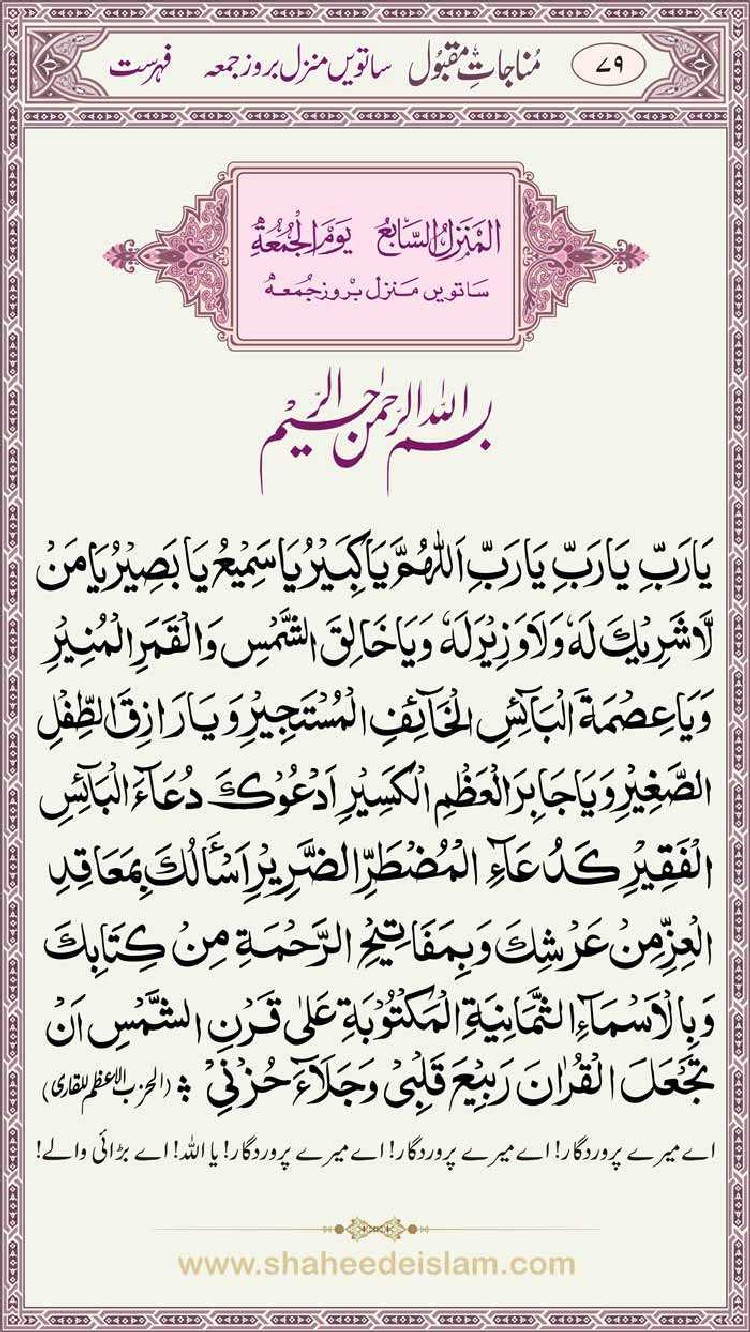 ۷۹ مُناجاتِ مقبُول ساتویں منزل بروز جمعہ فہرست
المَنزِلُ السَّابِعُ يَومَ الجُمُعَةِ
ساتویں منزل بروز جُمعہ
بسم الله الرحمن الرحيم
يَا رَبِّ يَا رَبِّ يَا رَبِّ اَللّٰهُمَّ يَا كَبِيْرُ يَا سَمِيْعُ يَا بَصِيْرُ يَا مَنْ
لَّا شَرِيْكَ لَهٗ وَلَا وَزِيْرَ لَهٗ وَيَا خَالِقَ الشَّمْسِ وَالْقَمَرِ الْمُنِيْرِ
وَيَا عِصْمَةَ الْبَآئِسِ الْخَآئِفِ الْمُسْتَجِيْرِ وَيَا رَازِقَ الطِّفْلِ
الصَّغِيْرِ وَيَا جَابِرَ الْعَظْمِ الْكَسِيْرِ اَدْعُوْكَ دُعَآءَ الْبَآئِسِ
الْفَقِيْرِ كَدُعَآءِ الْمُضْطَرِّ الضَّرِيْرِ اَسْأَلُكَ بِمَعَاقِدِ
الْعِزِّ مِنْ عَرْشِكَ وَبِمَفَاتِيْحِ الرَّحْمَةِ مِنْ كِتَابِكَ
وَبِالْاَسْمَآءِ الثَّمَانِيَةِ الْمَكْتُوْبَةِ عَلٰى قَرْنِ الشَّمْسِ اَنْ
تَجْعَلَ الْقُرْاٰنَ رَبِيْعَ قَلْبِيْ وَجَلَآءَ حُزْنِيْ (الحزب الاعظم للقاری)
اے میرے پروردگار! اے میرے پروردگار! اے میرے پروردگار! یا اللہ! اے بڑائی والے!
www.shaheedeislam.com